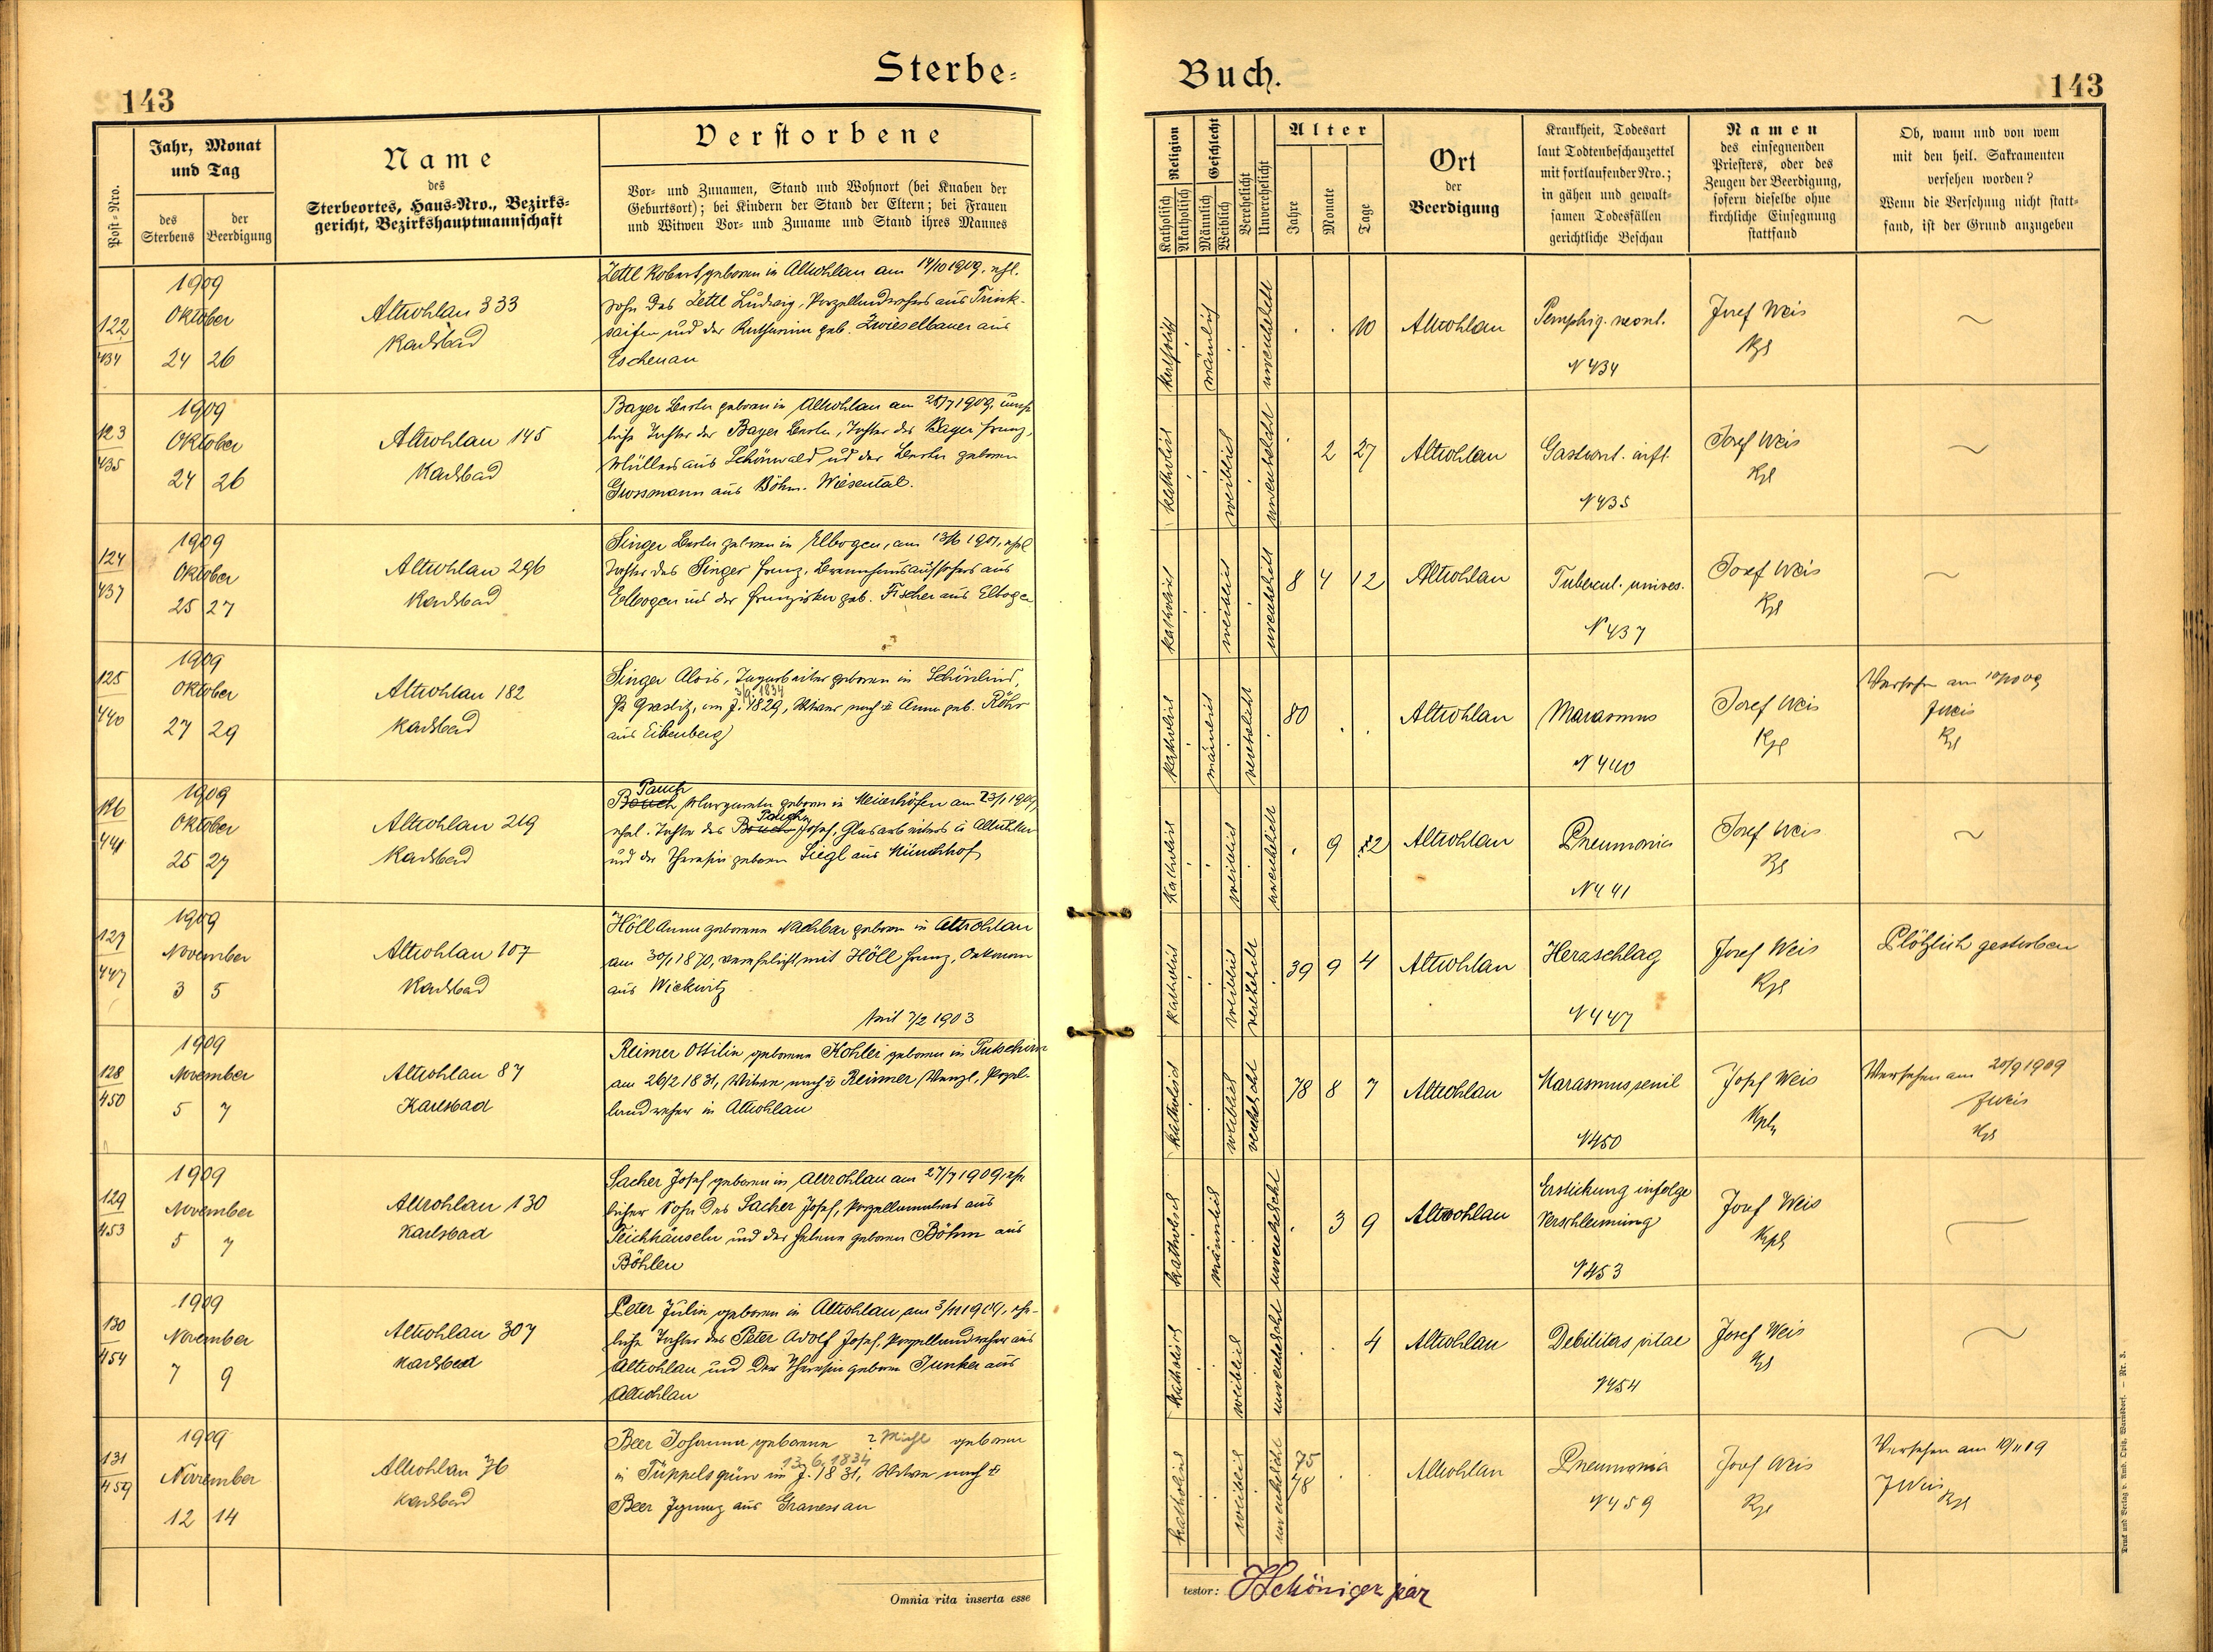 Sterbe=
Buch.
143
143
Post=Nro.
Jahr, Monat
und Tag
des
Sterbens
der
Beerdigung
Name
des
Sterbeortes, Haus=Nro., Bezirks=
gericht, Bezirkshauptmannschaft
Verstorbene
Vor= und Zunamen, Stand und Wohnort (bei Knaben der
Geburtsort); bei Kindern der Stand der Eltern; bei Frauen
und Witwen Vor= und Zuname und Stand ihres Mannes
Religion
Katholisch
Akatholisch
Geschlecht
Männlich
Weiblich
Verehelicht
Unverehelicht
Alter
Jahre
Monate
Tage
Ort
der
Beerdigung
Krankheit, Todesart
laut Todtenbeschauzettel
mit fortlaufender Nro.;
in gähen und gewalt=
samen Todesfällen
gerichtliche Beschau
Namen
des einsegnenden
Priesters, oder des
Zeugen der Beerdigung,
sofern dieselbe ohne
kirchliche Einsegnung
stattfand
Ob, wann und von wem
mit den heil. Sakramenten
versehen worden?
Wenn die Versehung nicht statt=
fand, ist der Grund anzugeben
122
434
1909
Oktober
24 26
Altrohlau 333
Karlsbad
Zettl Robert, geboren in Altrohlau am 14/10 1909, ehl.
Sohn des Zettl Ludwig, Porzellandrehers aus Trink-
saifen und der Katharina geb. Zwieselbauer aus
Eschenau
katholisch
männlich
unverehelicht
10
Altrohlau
Pemphig. neont.
N 434
Josef Weis
Kpl
123
435
1909
Oktober
24 26
Altrohlau 145
Karlsbad
Bayer Berta geboren in Altrohlau am 28/7 1909, unehe
liche Tochter der Bayer Berta, Tochter des Bayer Franz,
Müllers aus Schönwald ud der Berta geboren
Grossmann aus Böhm. Wiesental.
katholisch
weiblich
unverehelicht
2 27
Altrohlau
N 435
Josef Weis
Kpl
124
437
1909
Oktober
25 27
Altrohlau 296
Karlsbad
Singer Berta geboren in Elbogen, am 13/6 1901, ehel
Tochter des Singer Franz, Brennhausaufsehers aus
Elbogen ud der Franziska geb. Fischer aus Elbogen
katholisch
weiblich
unverehelicht
8 4 12
Altrohlau
Tubercul. univers.
N 437
Josef Weis
Kpl
125
440
1909
Oktober
27 29
Altrohlau 182
Karlsbad
Singer Alois, Tagarbeiter geboren in Schönlind,
3/9. 1834
Graslitz, im J. 1829, Witwer nach Anna geb. Röhr
aus Eibenberg
katholisch
männlich
verehelicht
80
Altrohlau
Marasmus
N 440
Josef Weis
Kpl
Versehen am 10/10 09
JWeis
Kpl
126
441
1909
Oktober
25 27
Altrohlau 219
Karlsbad
Pauch
Bouch Margareta geboren in Meierhöfen am 23/1 1909,
ehel. Tochter des Josef, Glasarbeiters in Altrohlau
und der Theresia geboren Siegl aus Münchhof
katholisch
weiblich
unverehelicht
9 2
Altrohlau
Pneumonia
N 441
Josef Weis
Kpl
127
447
1909
November
3 5
Altrohlau 107
Karlsbad
Höll Anna geborene Nachbar geboren in Altrohlau
am 30/1 1870, verehelicht mit Höll Franz,
aus Wickwitz
seit 7/2 1903
katholisch
weiblich
verehelicht
39 9 4
Altrohlau
Herzschlag
N 447
Josef Weis
Kpl
Plötzlich gestorben
128
450
1909
November
5 7
Altrohlau 87
Karlsbad
Reimer Ottilia geborene Kohler geboren in Putschirn
am 26/2 1831, Witwe nach Reimer Wenzl, Porzel-
landreher in Altrohlau
katholisch
weiblich
verehelicht
78 8 7
Altrohlau
Marasmus senil
N 450
Josef Weis
Kpl
Versehen am 20/9 1909
JWeis
Kpl
129
453
1909
November
5 7
Altrohlau 130
Karlsbad
Sacher Josef, geboren in Altrohlau am 27/7 1909, ehe
licher Sohn des Sacher Josef, Porzellanmalers aus
Teichhäuseln und der Helena geboren Böhm aus
Böhlen
katholisch
männlich
unverehelicht
3 9
Altrohlau
Erstickung infolge
Verschleimung
N 453
Josef Weis
Kpl
130
454
1909
November
7 9
Altrohlau 307
Karlsbad
Peter Julia geboren in Altrohlau am 3/11 1909, ehe-
liche Tochter des Peter Adolf Josef, Porzellandreher aus
Altrohlau und der Theresia geboren Junker aus
Altrohlau
katholisch
weiblich
unverehelicht
4
Altrohlau
Debilitas vitae
N 454
Josef Weis
Kpl
131
459
1909
November
12 14
Altrohlau 76
Karlsbad
Beer Johanna geborene ? Michl geboren
13. 6. 1834
in Tüppelsgrün im J. 1831, Witwe nach
Beer Ignaz aus Granessau
katholisch
weiblich
unverehelicht
75
78
Altrohlau
Pneumonia
N 459
Josef Weis
Kpl
Versehen am 10/11 19
JWeis
Kpl
Omnia rita inserta esse
testor: Schöniger
Druck und Verlag v. Amb. Opitz, Warnsdorf. — Nr. 3.